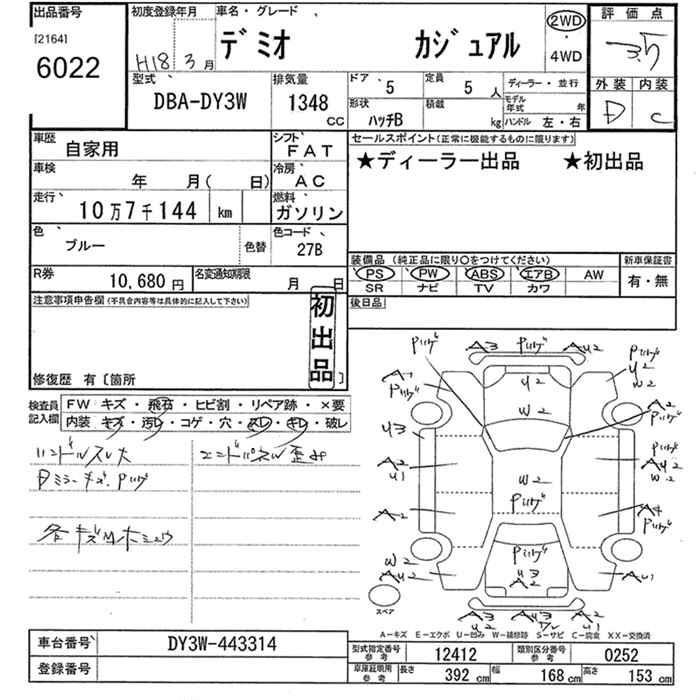 出品番号 初度登録年月 車名・グレード 2WD 評価点
[2164] 6022 H18年3月 デミオ カジュアル ・ 3.5
4WD
型式 排気量 ドア 5 定員 5人 ディーラー・並行 外装 内装
DBA-DY3W 1348cc 形状 ハッチB 積載 kg モデル年式 年 D C
ハンドル 左・右
車歴 自家用 シフト FAT セールスポイント(正常に機能するものに限ります)
車検 年 月( 日) 冷房 AC ★ディーラー出品 ★初出品
走行 10万7千144 km 燃料 ガソリン
色 ブルー 色替 色コード 27B
装備品(純正品に限り○をつけてください) 新車保証書
R券 10,680円 名変通知期限 月 日 PS PW ABS エアB AW 有・無
SR ナビ TV カワ
注意事項申告欄(不具合内容等は具体的に記入して下さい) 初出品 後日品
修復歴 有〔箇所 〕
検査員記入欄 FW キズ・飛石・ヒビ割・リペア跡・×要
内装 キズ・汚レ・コゲ・穴・スレ・キレ・破レ
ハンドルスレ大 エンドパネル歪み
Dミラーキズ・Pハゲ
各キズ
A3 Pハゲ AU2
Pハゲ Pハゲ
A1 U2 U2
Pハゲ W2 W2
A2
Pハゲ
U3
A2 Pハゲ
U1 W2 AU2
Pハゲ W2
A2 A4
Pハゲ
W2 Pハゲ
AU2 U3 AU1
A2
スペア A3 AU3 A2
U2 U1
A-キズ E-エクボ U-凹み W-補修跡 S-サビ C-腐食 XX-交換済
車台番号 DY3W-443314 型式指定番号 参考 12412 類別区分番号 参考 0252
登録番号 車庫証明用 参考 長さ 392cm 幅 168cm 高さ 153cm